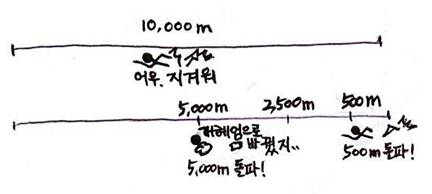 10,000m
어우. 지겨워
5,000m 2,500m 500m
개헤엄으로
바꿨지..
5,000m 돌파!
500m 돌파!